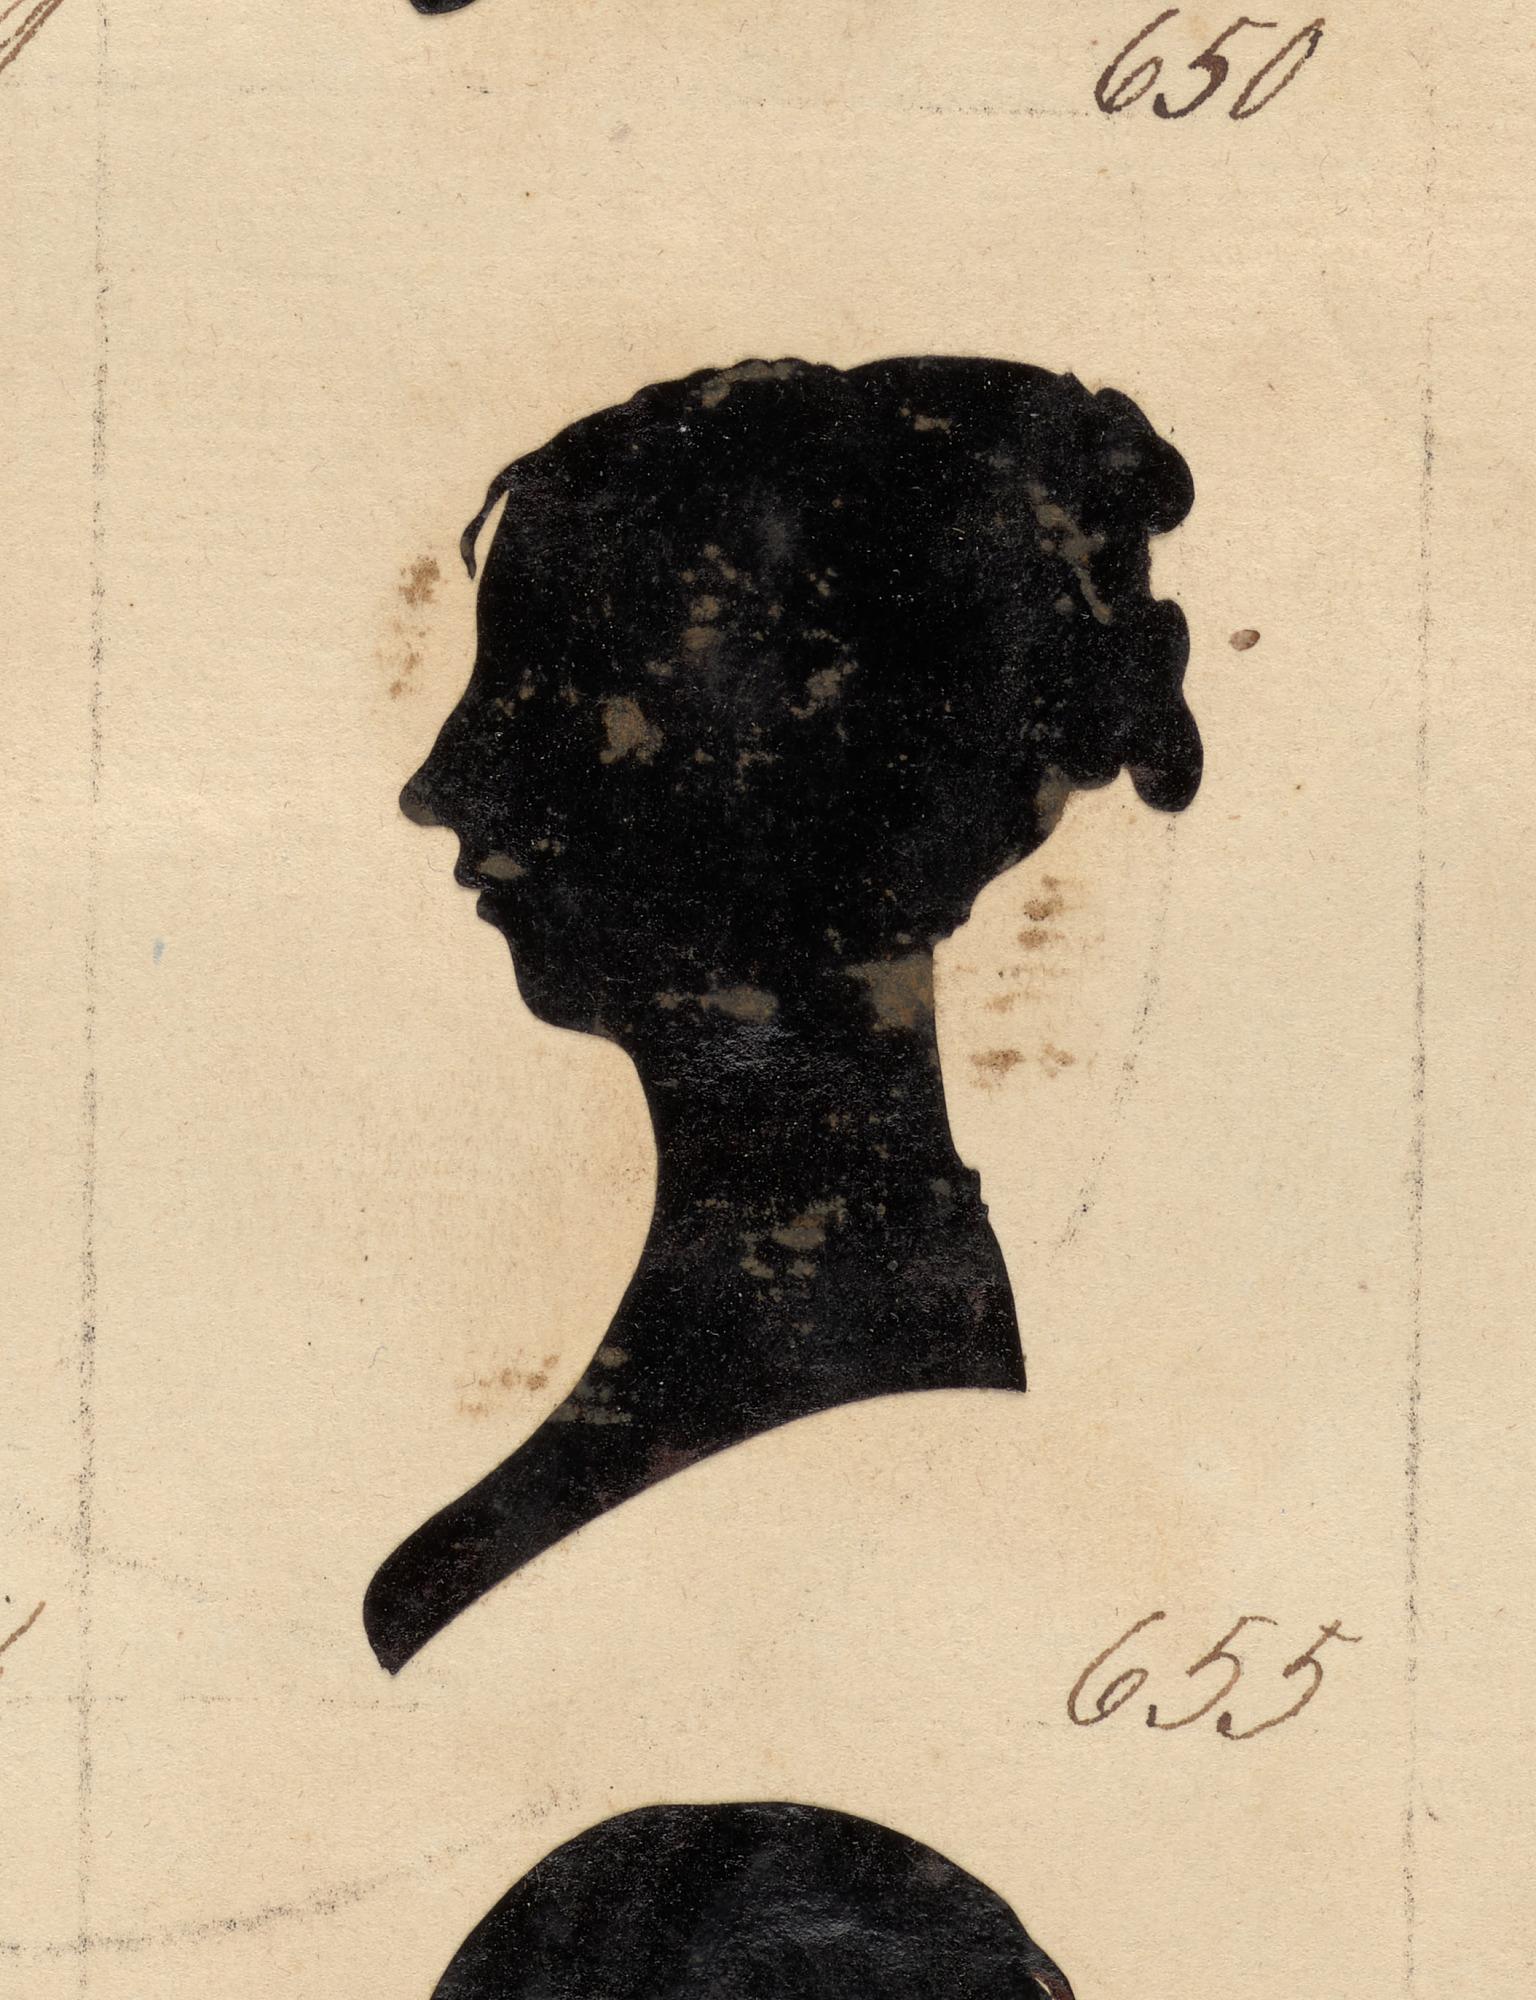 650
655